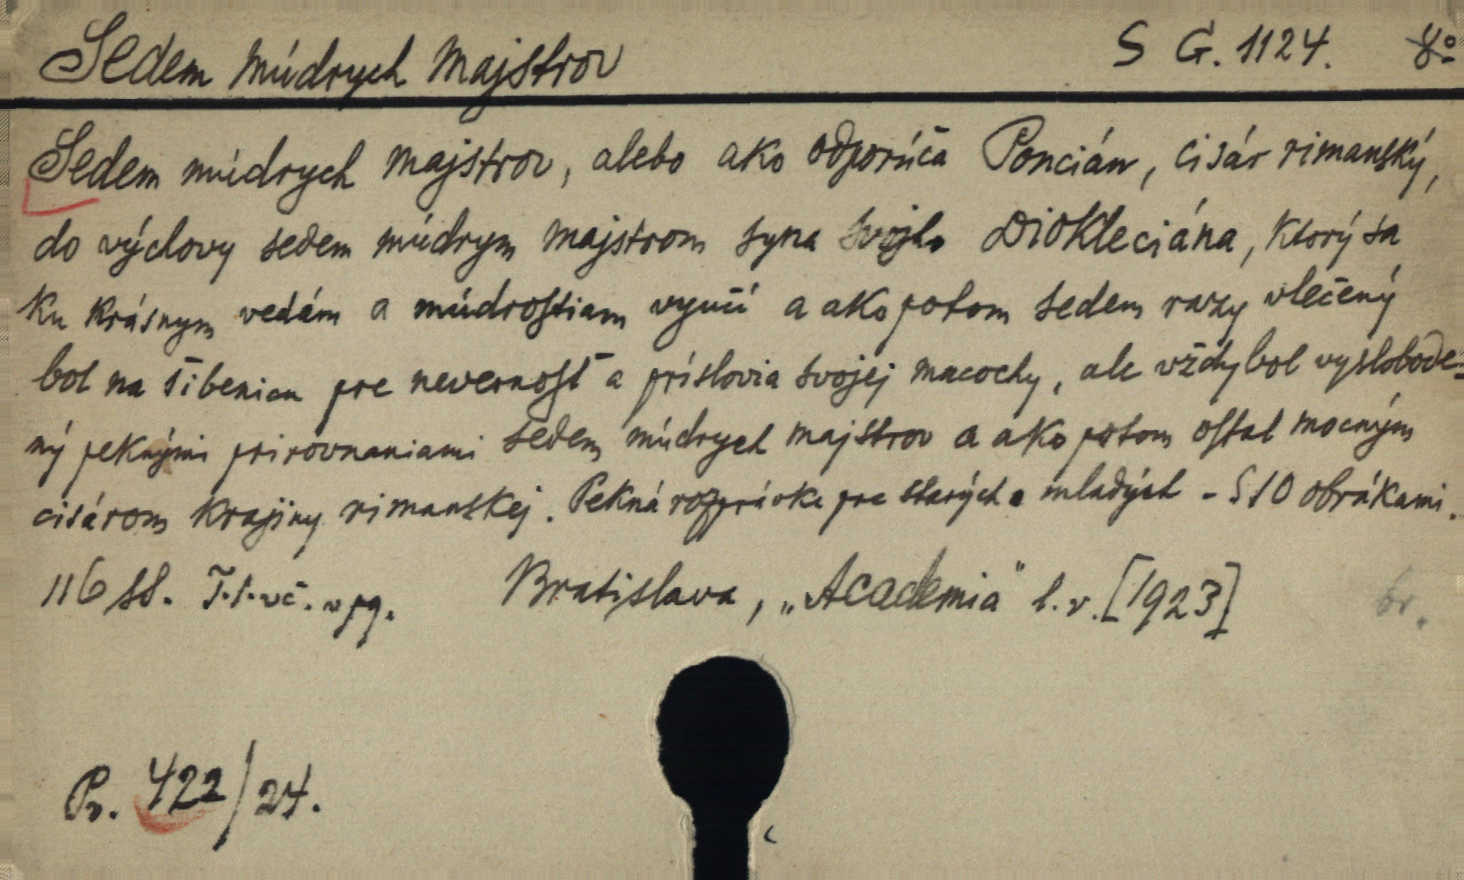 Sedem múdrych majstrov S G. 1124. 8°
Sedem múdrych majstrov, alebo ako odporúča Poncián, cisár rimanský,
do výchovy sedem múdrym majstrom syna svojho Diokleciána, ktorý sa
ku krásnym vedám a múdrostiam vyučí a ako potom sedem razy vlečený
bol na šibenicu pre nevernosť a príslovia svojej macochy, ale vždy bol vyslobode-
ný peknými prirovnaniami sedem múdrych majstrov a ako potom ostal mocným
cisárom krajiny rimanskej. Pekná rozprávka pre starých a mladých - S 10 obrákami.
116 ss. T.s. vč. v pg. Bratislava, „Academia" l. r. [1923] br.
Pr. 422/24.